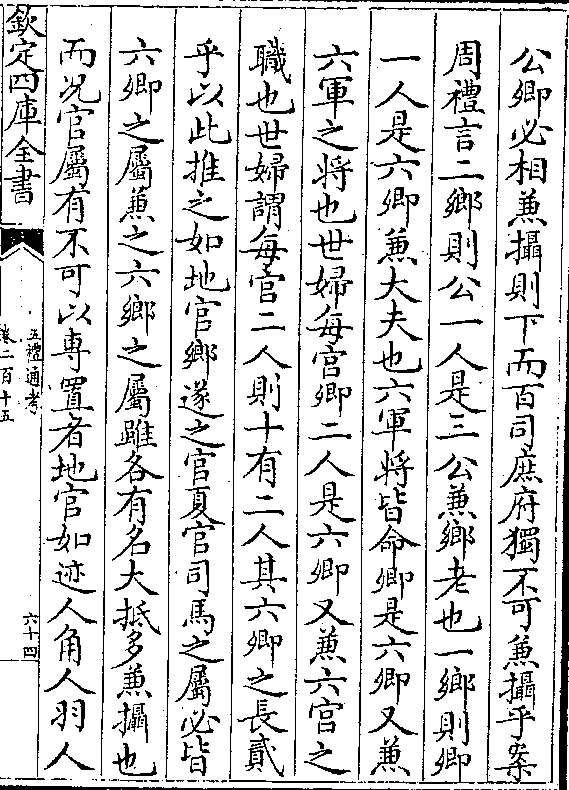 公卿必相兼攝則下而百司庶府獨不可兼攝乎案
周禮言二鄉則公一人是三公兼鄉老也一鄉則卿
一人是六卿兼大夫也六軍將皆命卿是六卿又兼
六軍之將也世婦每宮卿二人是六卿又兼六宮之
職也世婦謂每宮二人則十有二人其六卿之長貳
乎以此推之如地官鄉遂之官夏官司馬之屬必皆
六卿之屬兼之六鄉之屬雖各有名大抵多兼攝也
而况官屬有不可以專置者地官如迹人角人羽人
欽定四庫全書
五禮通考
卷二百十五
六十四